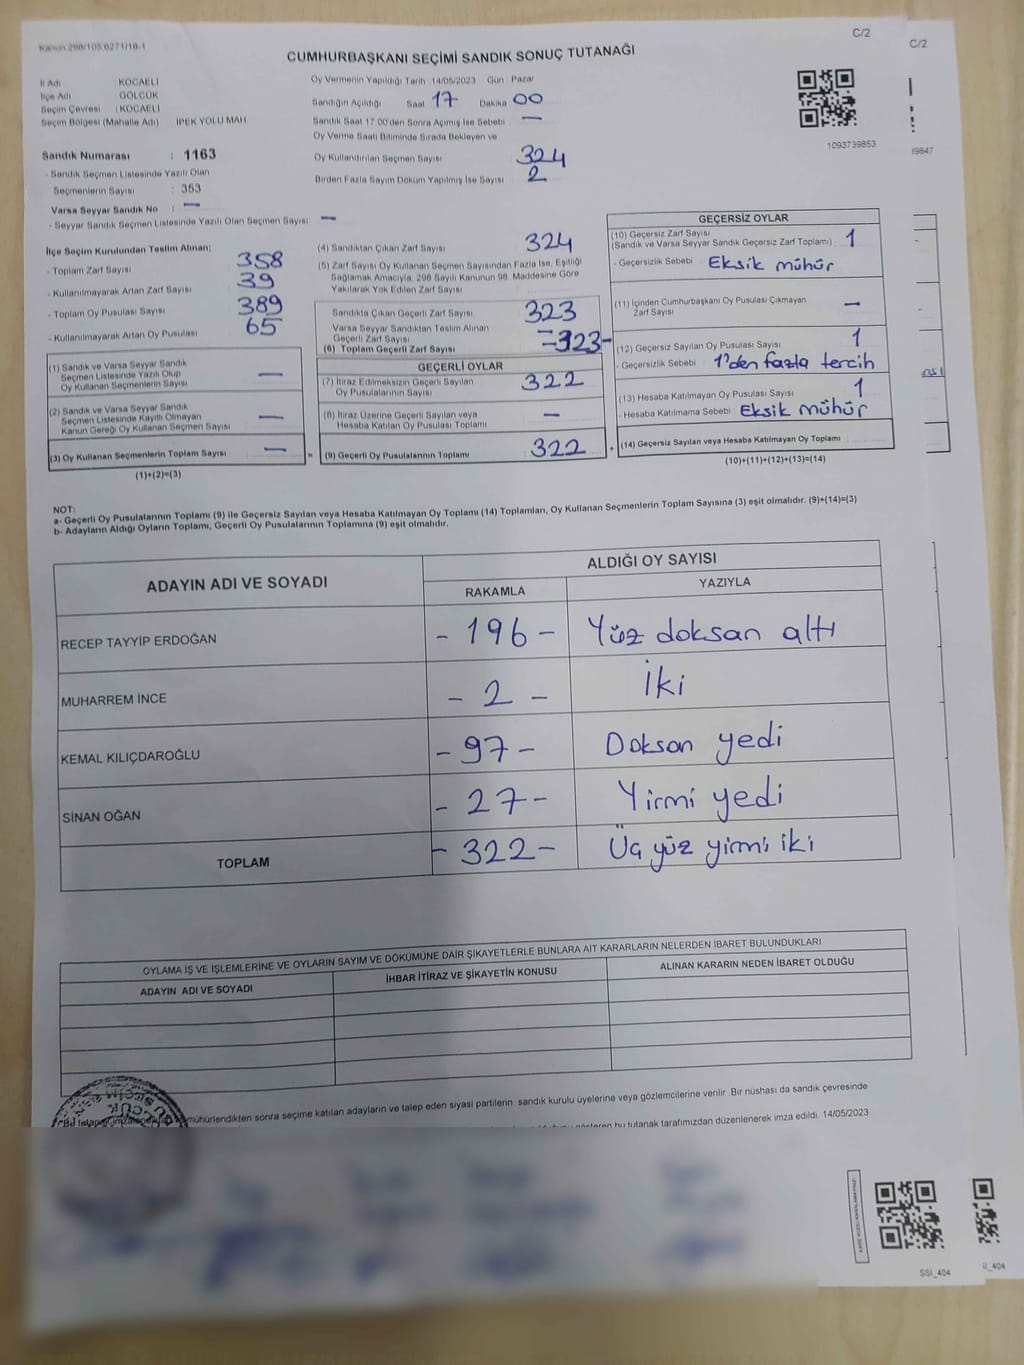 Kanun 298/105 6271/18-1
C/2
C/2
CUMHURBAŞKANI SEÇİMİ SANDIK SONUÇ TUTANAĞI
İl Adı KOCAELİ
İlçe Adı GÖLCÜK
Seçim Çevresi : KOCAELİ
Seçim Bölgesi (Mahalle Adı) : İPEK YOLU MAH
Oy Vermenin Yapıldığı Tarih : 14/05/2023 Gün : Pazar
Sandığın Açıldığı Saat 17 Dakika 00
Sandık Saat 17:00'den Sonra Açımış İse Sebebi : —
Oy Verme Saati Bitiminde Sırada Bekleyen ve
Oy Kullandırılan Seçmen Sayısı 324
Birden Fazla Sayım Döküm Yapılmış İse Sayısı 2
1093739853
39847
Sandık Numarası : 1163
- Sandık Seçmen Listesinde Yazılı Olan
Seçmenlerin Sayısı : 353
Varsa Seyyar Sandık No : —
- Seyyar Sandık Seçmen Listesinde Yazılı Olan Seçmen Sayısı : —
İlçe Seçim Kurulundan Teslim Alınan;
- Toplam Zarf Sayısı 358
- Kullanılmayarak Artan Zarf Sayısı 39
- Toplam Oy Pusulası Sayısı 389
- Kullanılmayarak Artan Oy Pusulası 65
(1) Sandık ve Varsa Seyyar Sandık
Seçmen Listesinde Yazılı Olup
Oy Kullanan Seçmenlerin Sayısı —
(2) Sandık ve Varsa Seyyar Sandık
Seçmen Listesinde Kayıtlı Olmayan
Kanun Gereği Oy Kullanan Seçmen Sayısı —
(3) Oy Kullanan Seçmenlerin Toplam Sayısı —
(1)+(2)=(3)
=
(4) Sandıktan Çıkan Zarf Sayısı 324
(5) Zarf Sayısı Oy Kullanan Seçmen Sayısından Fazla İse, Eşitliği
Sağlamak Amacıyla, 298 Sayılı Kanunun 98. Maddesine Göre
Yakılarak Yok Edilen Zarf Sayısı
Sandıkta Çıkan Geçerli Zarf Sayısı 323
Varsa Seyyar Sandıktan Teslim Alınan
Geçerli Zarf Sayısı —
(6) Toplam Geçerli Zarf Sayısı -323-
GEÇERLİ OYLAR
(7) İtiraz Edilmeksizin Geçerli Sayılan
Oy Pusulalarının Sayısı 322
(8) İtiraz Üzerine Geçerli Sayılan veya
Hesaba Katılan Oy Pusulası Toplamı —
(9) Geçerli Oy Pusulalarının Toplamı 322
+
GEÇERSİZ OYLAR
(10) Geçersiz Zarf Sayısı
(Sandık ve Varsa Seyyar Sandık Geçersiz Zarf Toplamı) : 1
- Geçersizlik Sebebi : Eksik mühür
(11) İçinden Cumhurbaşkanı Oy Pusulası Çıkmayan
Zarf Sayısı —
(12) Geçersiz Sayılan Oy Pusulası Sayısı 1
- Geçersizlik Sebebi : 1'den fazla tercih
(13) Hesaba Katılmayan Oy Pusulası Sayısı 1
- Hesaba Katılmama Sebebi : Eksik mühür
(14) Geçersiz Sayılan veya Hesaba Katılmayan Oy Toplamı
(10)+(11)+(12)+(13)=(14)
NOT:
a- Geçerli Oy Pusulalarının Toplamı (9) ile Geçersiz Sayılan veya Hesaba Katılmayan Oy Toplamı (14) Toplamları, Oy Kullanan Seçmenlerin Toplam Sayısına (3) eşit olmalıdır. (9)+(14)=(3)
b- Adayların Aldığı Oyların Toplamı, Geçerli Oy Pusulalarının Toplamına (9) eşit olmalıdır.
ADAYIN ADI VE SOYADI
ALDIĞI OY SAYISI
RAKAMLA YAZIYLA
RECEP TAYYİP ERDOĞAN - 196 - Yüz doksan altı
MUHARREM İNCE - 2 - İki
KEMAL KILIÇDAROĞLU - 97 - Doksan yedi
SİNAN OĞAN - 27 - Yirmi yedi
TOPLAM - 322 - Üç yüz yirmi iki
OYLAMA İŞ VE İŞLEMLERİNE VE OYLARIN SAYIM VE DÖKÜMÜNE DAİR ŞİKAYETLERLE BUNLARA AİT KARARLARIN NELERDEN İBARET BULUNDUKLARI
ADAYIN ADI VE SOYADI İHBAR İTİRAZ VE ŞİKAYETİN KONUSU ALINAN KARARIN NEDEN İBARET OLDUĞU
mühürlendikten sonra seçime katılan adayların ve talep eden siyasi partilerin sandık kurulu üyelerine veya gözlemcilerine verilir. Bir nüshası da sandık çevresinde
gösteren bu tutanak tarafımızdan düzenlenerek imza edildi. 14/05/2023
SSI_404
II_404